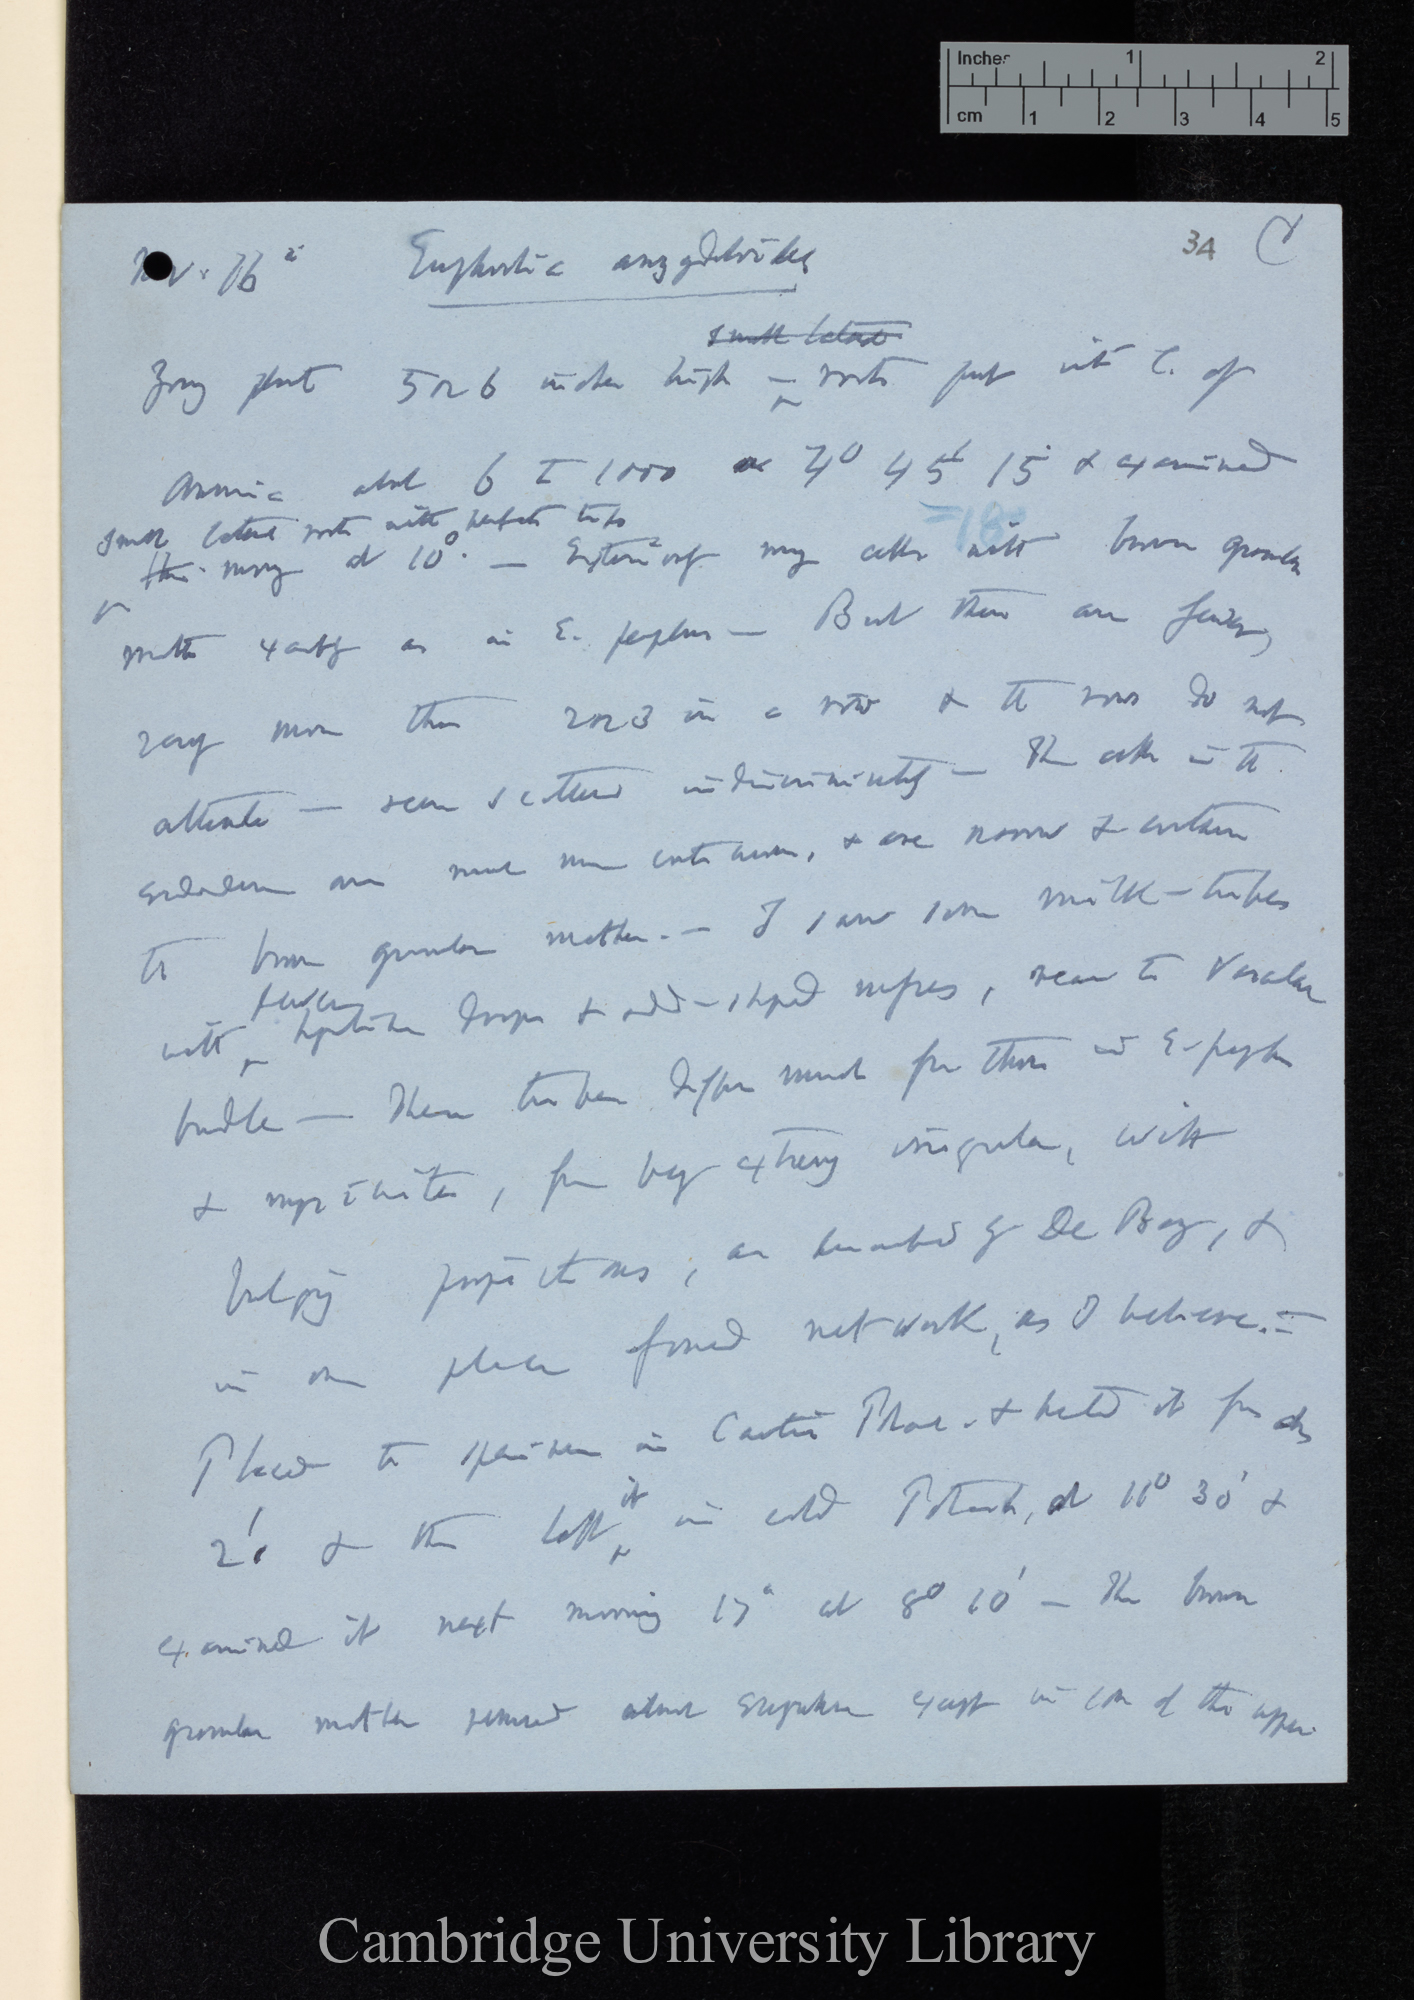 Inches 1 2
cm 1 2 3 4 5
34
Nov. 16 Euphorbia amygdaloides
small lateral
Young plant 5 or 6 inches high — roots put into C. of
Ammonia about 6 to 1000 at 7° 45' 15 & examined
=18
small lateral roots with perfect tips
this morng at 10°. — Exterior of many cells with brown granular
matter exactly as in E. peplus — But there are fewer,
rarely more than 2 or 3 in a row & the rows do not
alternate — seem scattered indiscriminately — The cells in the
are much more & are narrow & contain
the brown granular matter. — I saw some milk-tubes
with fewer drops & odd-shaped masses, near the vascular
bundle — These tubes differ much from those in E. peplus
& myrsinites, from being extremely irregular, with
bulging projections, as described by De Bary, &
in one place formed network, as I believe. —
Placed the specimen in Caustic Potash & heated it for about
2' & then left it in cold Potash, at 11° 30' &
examined it next morning 17 at 8° 10' — The brown
granular matter removed almost everywhere except in some of the upper
Cambridge University Library